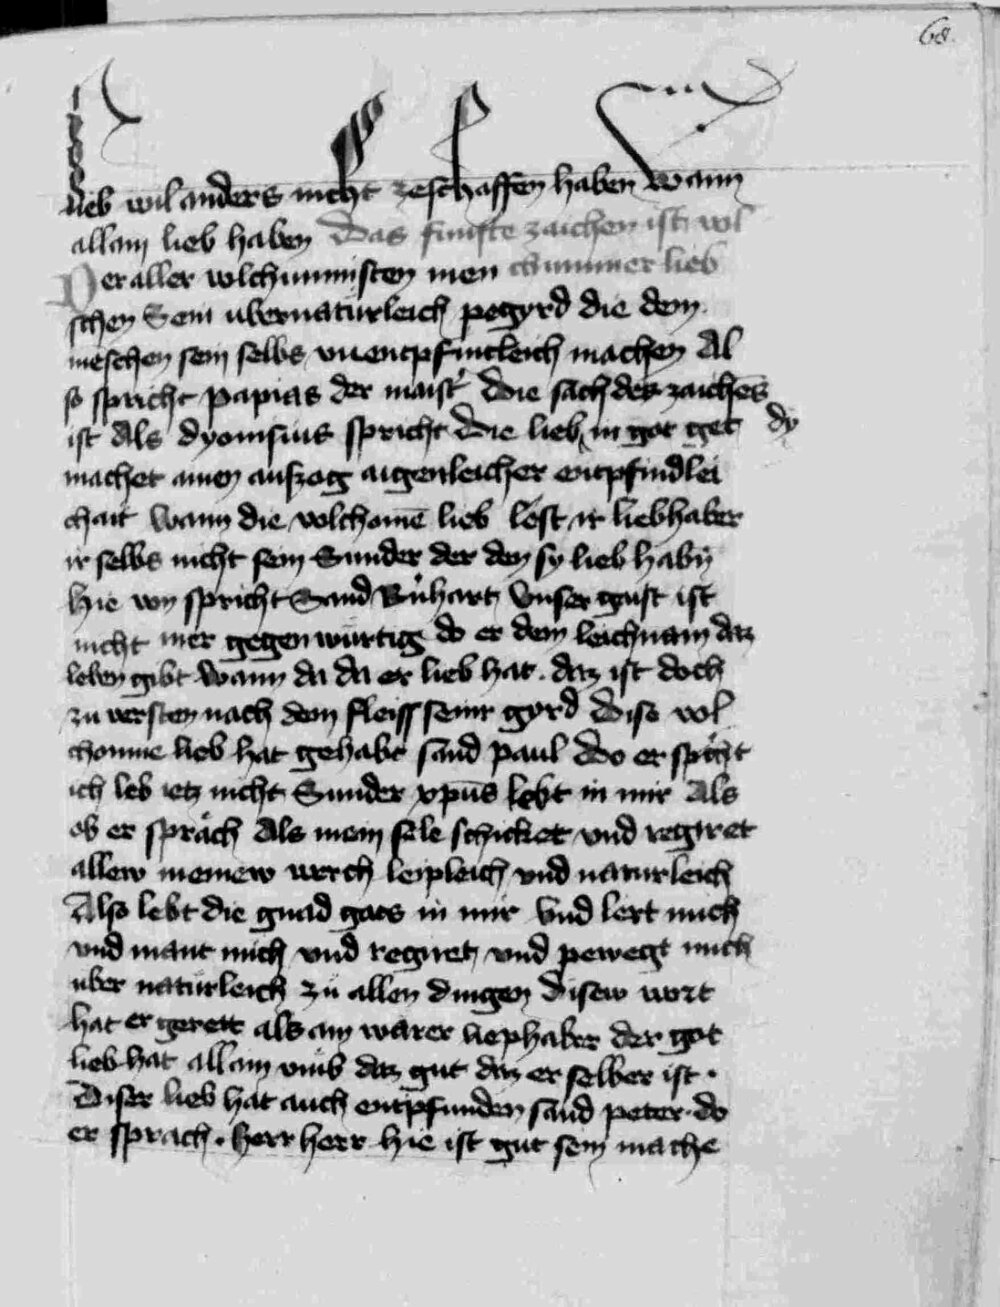 68.
lieb wil anders nicht zeschaffen haben wann
allain lieb haben Das funfte zaichen ist vol
Der aller volchumnisten men chummer lieb
schen Sein ubernaturleich pegyrd die dem
meschen sein selbs vnentpfintleich machen Al
so spricht Papias der maist' Die sach des zaichēs
ist Als dyonisius spricht Die lieb in got get dy
machet ainen aufzog aigenleicher entpfindlei
chait Wann die volchomē lieb lest ir liebhaber
ir selbs nicht sein Sunder der den sy lieb habn̄
Hie von spricht Sand Bn̄hart Unser gaist ist
nicht mer gegenwürtig do er dem leichnam daz
leben gibt Wann da da er lieb hat . daz ist doch
zu versten nach dem fleiss seinr gyrd Dise vol
chomne lieb hat gehabt sand paul Do er spricht
ich leb ietz nicht Sunder xp̄us lebt in mir Als
ob er sprach Als mein sele schicket vnd regiret
allew meinew werch leipleich vnd naturleich
Also lebt die gnad gots in mir Vnd lert mich
vnd mant mich vnd regiret vnd pewegt mich
uber naturleich zu allen dingen Disew wort
hat er gerett als ain warer liephaber der got
lieb hat allain vmb daz gut daz er selber ist .
Diser lieb hat auch entpfunden sand peter . do
er sprach . Herr herr hie ist gut sein mache